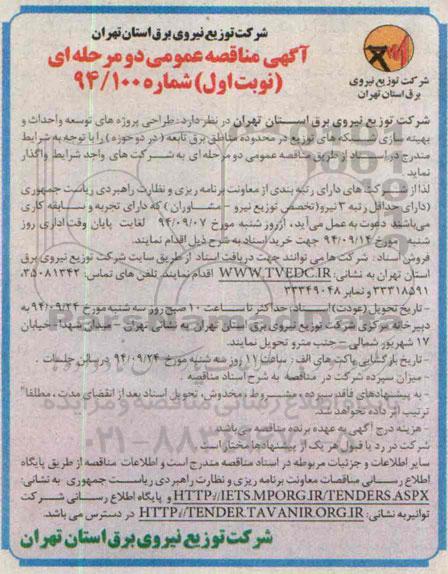 شرکت توزیع نیروی برق استان تهران
آگهی مناقصه عمومی دو مرحله ای
(نوبت اول) شماره ۹۴/۱۰۰
شرکت توزیع نیروی
برق استان تهران
شرکت توزیع نیروی برق استان تهران در نظر دارد: طراحی پروژه های توسعه و احداث و
بهینه سازی شبکه های توزیع در محدوده مناطق برق تابعه (در دو حوزه) را با توجه به شرایط
مندرج در اسناد از طریق مناقصه عمومی دو مرحله ای به شرکت های واجد شرایط واگذار
نماید.
لذا از شرکت های دارای رتبه بندی از معاونت برنامه ریزی و نظارت راهبردی ریاست جمهوری
(دارای حداقل رتبه ۳ نیرو (تخصص توزیع نیرو - مشاوران) که دارای تجربه و سابقه کاری
می باشند دعوت به عمل می آید، از روز شنبه مورخ ۹۴/۰۹/۰۷ لغایت پایان وقت اداری روز
شنبه مورخ ۹۴/۰۹/۱۴ جهت خرید اسناد به شرح ذیل اقدام نمایند.
فروش اسناد: شرکت ها می توانند جهت دریافت اسناد از طریق سایت شرکت توزیع نیروی برق
استان تهران به نشانی: WWW.TVEDC.IR اقدام نمایند. تلفن های تماس: ۳۵۰۸۱۳۴۲،
۳۳۳۱۸۵۹۱ و نمابر ۳۳۳۴۹۰۴۸
- تاریخ تحویل (عودت) اسناد: حداکثر تا ساعت ۱۰ صبح روز سه شنبه مورخ ۹۴/۰۹/۲۴ به
دبیرخانه مرکزی شرکت توزیع نیروی برق استان تهران به نشانی تهران - میدان شهدا - خیابان
۱۷ شهریور شمالی - جنب مترو تحویل نمایند.
- تاریخ بازگشایی پاکت های الف: ساعت ۱۱ روز سه شنبه مورخ ۹۴/۰۹/۲۴ در سالن جلسات.
- میزان سپرده شرکت در مناقصه به شرح اسناد مناقصه.
- به پیشنهادهای فاقد سپرده، مشروط، مخدوش، تحویل اسناد بعد از انقضای مدت، مطلقا"
ترتیب اثر داده نخواهد شد.
- هزینه درج آگهی به عهده برنده مناقصه می باشد
شرکت در رد یا قبول هر یک از پیشنهادها مختار است
سایر اطلاعات و جزئیات مربوطه در اسناد مناقصه مندرج است و اطلاعات مناقصه از طریق پایگاه
اطلاع رسانی مناقصات معاونت برنامه ریزی و نظارت راهبردی ریاست جمهوری به نشانی:
HTTP://IETS.MPORG.IR/TENDERS.ASPX و پایگاه اطلاع رسانی شرکت
توانیر به نشانی: HTTP://TENDER.TAVANIR.ORG.IR در دسترس می باشد.
شرکت توزیع نیروی برق استان تهران